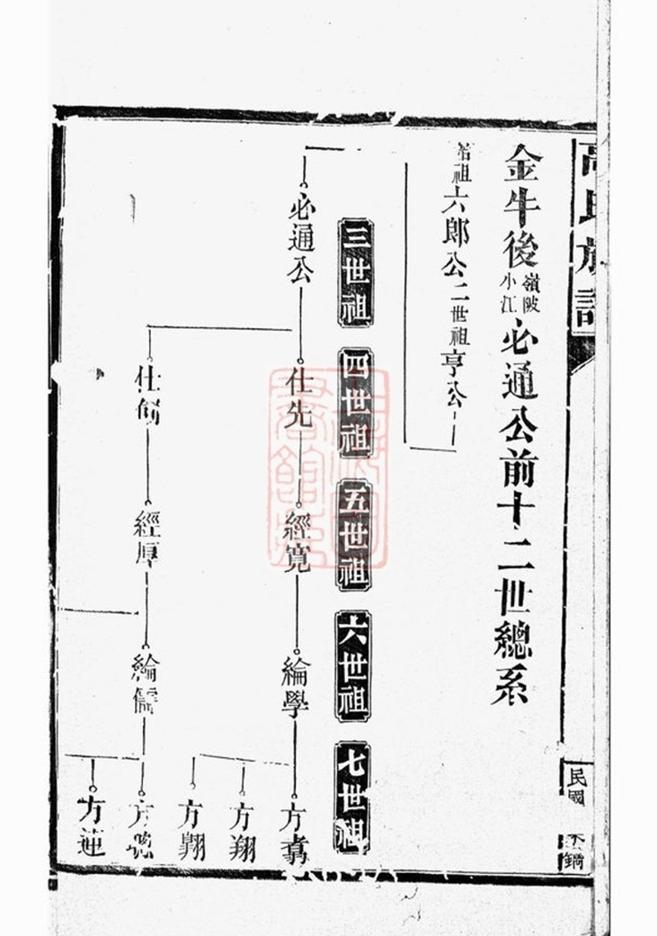 高氏族譜
金牛後嶺陂小江必通公前十二世總系
祖六郎公二世祖亨公
三世祖
四世祖
五世祖
六世祖
七世祖
必通公
仕先
經寬
綸學
方翥
方翔
方翺
仕
經厚
綸儒
方
方蓮
民國